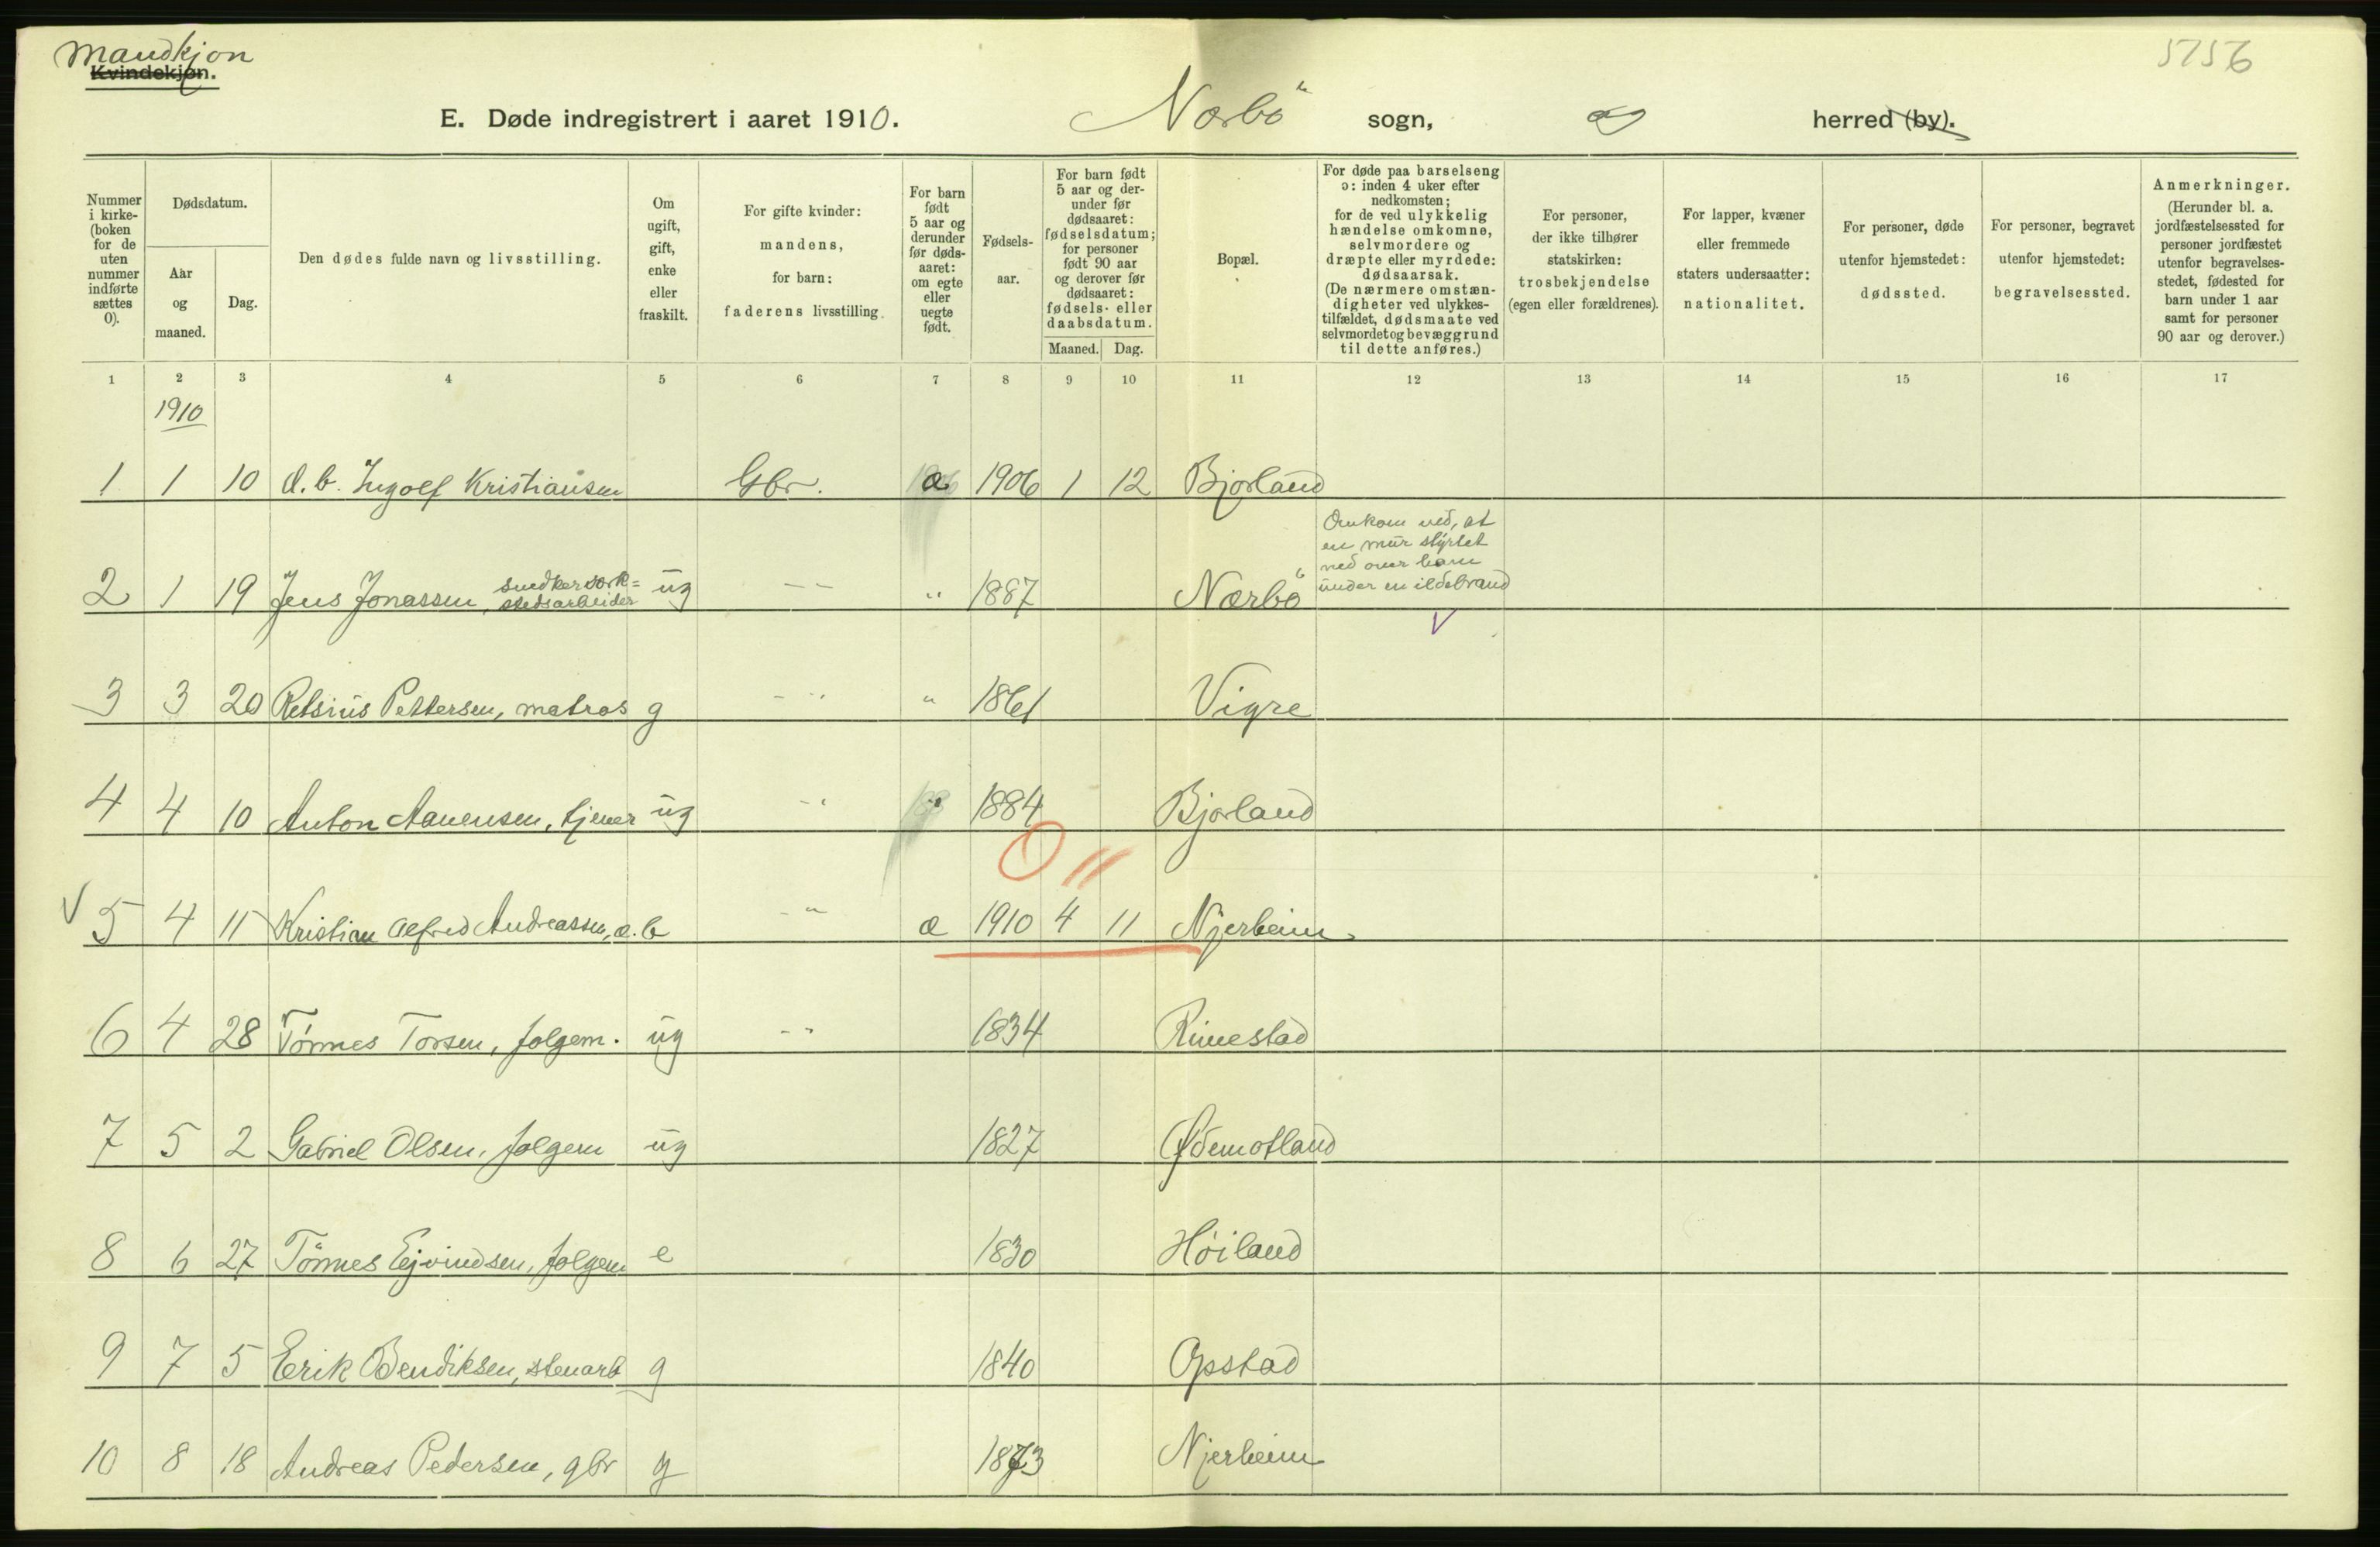 Mandkjøn
Kvindekjøn.
5756
E. Døde indregistrert i aaret 1910. Nærbö sogn, og herred (by).
Nummer i kirke- (boken for de uten nummer indførte sættes 0).
Dødsdatum.
Aar og maaned.
Dag.
Den dødes fulde navn og livsstilling.
Om ugift, gift, enke eller fraskilt.
For gifte kvinder: mandens, for barn: faderens livsstilling.
For barn født 5 aar og derunder før døds- aaret: om egte eller uegte født.
Fødsels- aar.
For barn født 5 aar og der- under før dødsaaret: fødselsdatum; for personer født 90 aar og derover før dødsaaret: fødsels- eller daabsdatum.
Maaned. Dag.
Bopæl.
For døde paa barselseng ɔ: inden 4 uker efter nedkomsten; for de ved ulykkelig hændelse omkomne, selvmordere og dræpte eller myrdede: dødsaarsak. (De nærmere omstæn- digheter ved ulykkes- tilfældet, dødsmaate ved selvmordet og bevæggrund til dette anføres.)
For personer, der ikke tilhører statskirken: trosbekjendelse (egen eller forældrenes).
For lapper, kvæner eller fremmede staters undersaatter: nationalitet.
For personer, døde utenfor hjemstedet: dødssted.
For personer, begravet utenfor hjemstedet: begravelsessted.
Anmerkninger. (Herunder bl. a. jordfæstelsessted for personer jordfæstet utenfor begravelses- stedet, fødested for barn under 1 aar samt for personer 90 aar og derover.)
1 2 3 4 5 6 7 8 9 10 11 12 13 14 15 16 17
1910
1 1 10 d.b. Ingolf Kristiansen Gbr. æ 1906 1 12 Bjorland
Omkom ved, at
en mur styrtet
ned over ham
under en ildebrand
2 1 19 Jens Jonassen, snedkerverk= stedsarbeider ug -- " 1887 Nærbö
V
3 3 20 Retsius Pettersen, matros g -" " 1861 Vigre
4 4 10 Anton Aanensen, tjener ug -" " 1884 Bjorland
0 11
V 5 4 11 Kristian Alfred Andreassen, d.b -" æ 1910 4 11 Njerheim
6 4 28 Tönnes Torsen, folgem. ug -" 1834 Rimestad
7 5 2 Gabriel Olsen, folgem ug 1827 Ødemotland
8 6 27 Tönnes Ejvindsen, folgem e 1830 Höiland
9 7 5 Erik Bendiksen, stenarb g 1840 Opstad
10 8 18 Andreas Pedersen, gbr g 1873 Njerheim